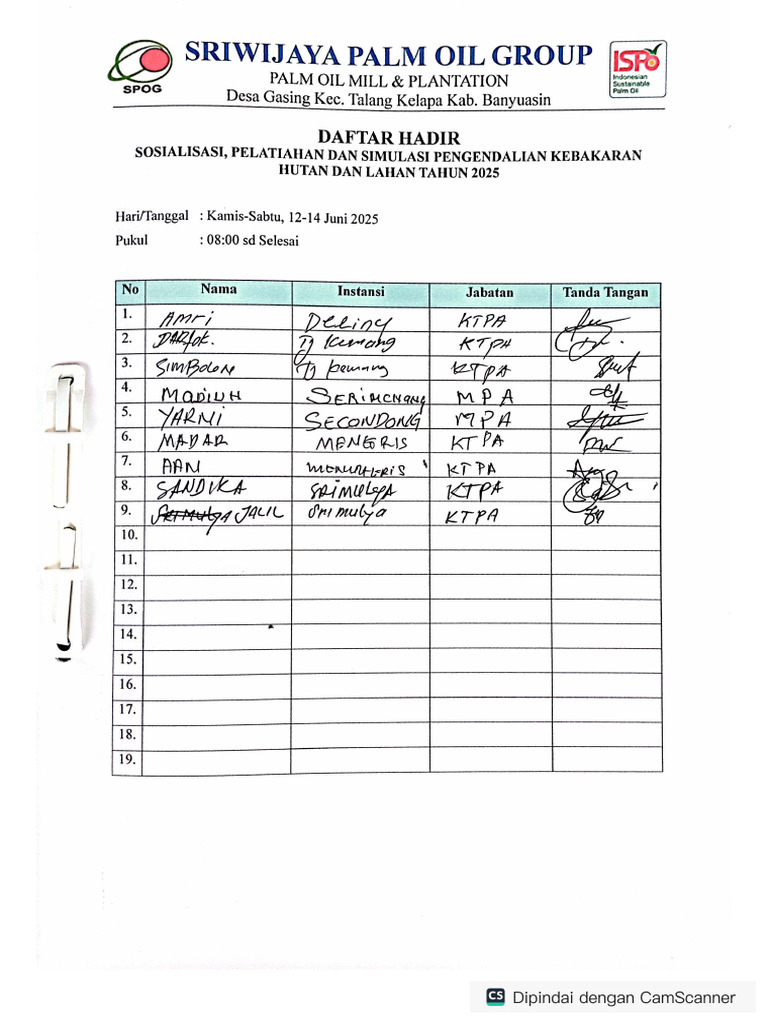 SRIWIJAYA PALM OIL GROUP
PALM OIL MILL & PLANTATION
Desa Gasing Kec. Talang Kelapa Kab. Banyuasin
SPOG
ISPO
Indonesian
Sustainable
Palm Oil
DAFTAR HADIR
SOSIALISASI, PELATIAHAN DAN SIMULASI PENGENDALIAN KEBAKARAN
HUTAN DAN LAHAN TAHUN 2025
Hari/Tanggal : Kamis-Sabtu, 12-14 Juni 2025
Pukul : 08:00 sd Selesai
No Nama Instansi Jabatan Tanda Tangan
1. Amri KTPA
2. Tj Kemang KTPA
3. SIMBOLON Tj Kemang KTPA
4. MPA
5. YARMI SECONDONG MPA
6. MADAR MENGERIS KTPA
7. AAN KTPA
8. SANDIKA SRIMULYA KTPA
9. SRIMULYA JALIL SRIMULYA KTPA
10.
11.
12.
13.
14.
15.
16.
17.
18.
19.
CS Dipindai dengan CamScanner